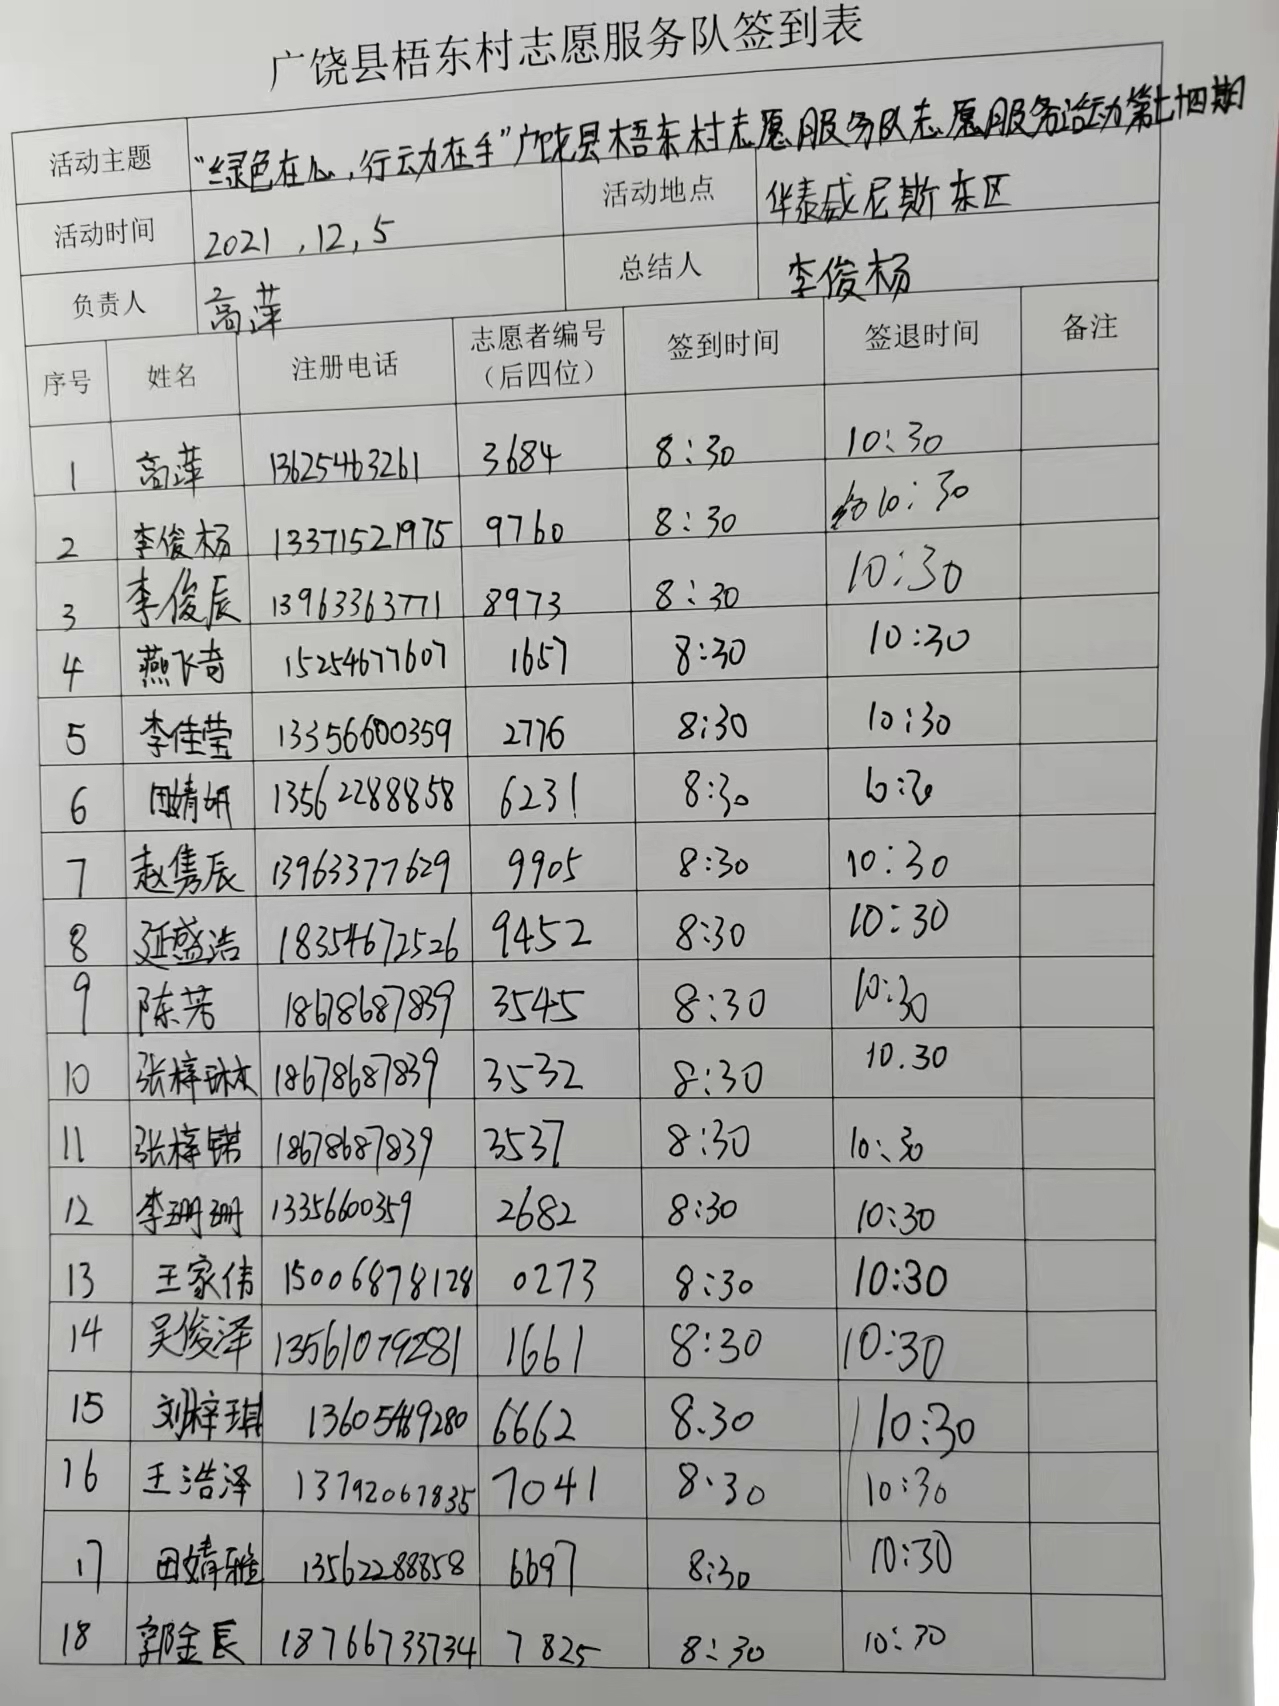 广饶县梧东村志愿服务队签到表
活动主题 “绿色在心,行动在手”广饶县梧东村志愿服务队志愿服务活动第七十四期
活动时间 2021,12,5 活动地点 华泰威尼斯东区
负责人 高萍 总结人 李俊杨
序号 姓名 注册电话 志愿者编号(后四位) 签到时间 签退时间 备注
1 高萍 13625463261 3684 8:30 10:30
2 李俊杨 13371521975 9760 8:30 10:30
3 李俊辰 13963363771 8973 8:30 10:30
4 燕飞奇 15254677607 1657 8:30 10:30
5 李佳莹 13356600359 2776 8:30 10:30
6 田婧妍 13562288858 6231 8:30
7 赵隽辰 13963377629 9905 8:30 10:30
8 延盛浩 18354672526 9452 8:30 10:30
9 陈芳 18678687839 3545 8:30 10:30
10 张梓琳 18678687839 3532 8:30 10.30
11 张梓锑 18678687839 3537 8:30 10:30
12 李珊珊 13356600359 2682 8:30 10:30
13 王家伟 15006878128 0273 8:30 10:30
14 吴俊泽 13561079281 1661 8:30 10:30
15 刘梓琪 13605469280 6662 8.30 10:30
16 王浩泽 13792067835 7041 8:30 10:30
17 田婧雅 13562288858 6697 8:30 10:30
18 郭金辰 18766733734 7825 8:30 10:30